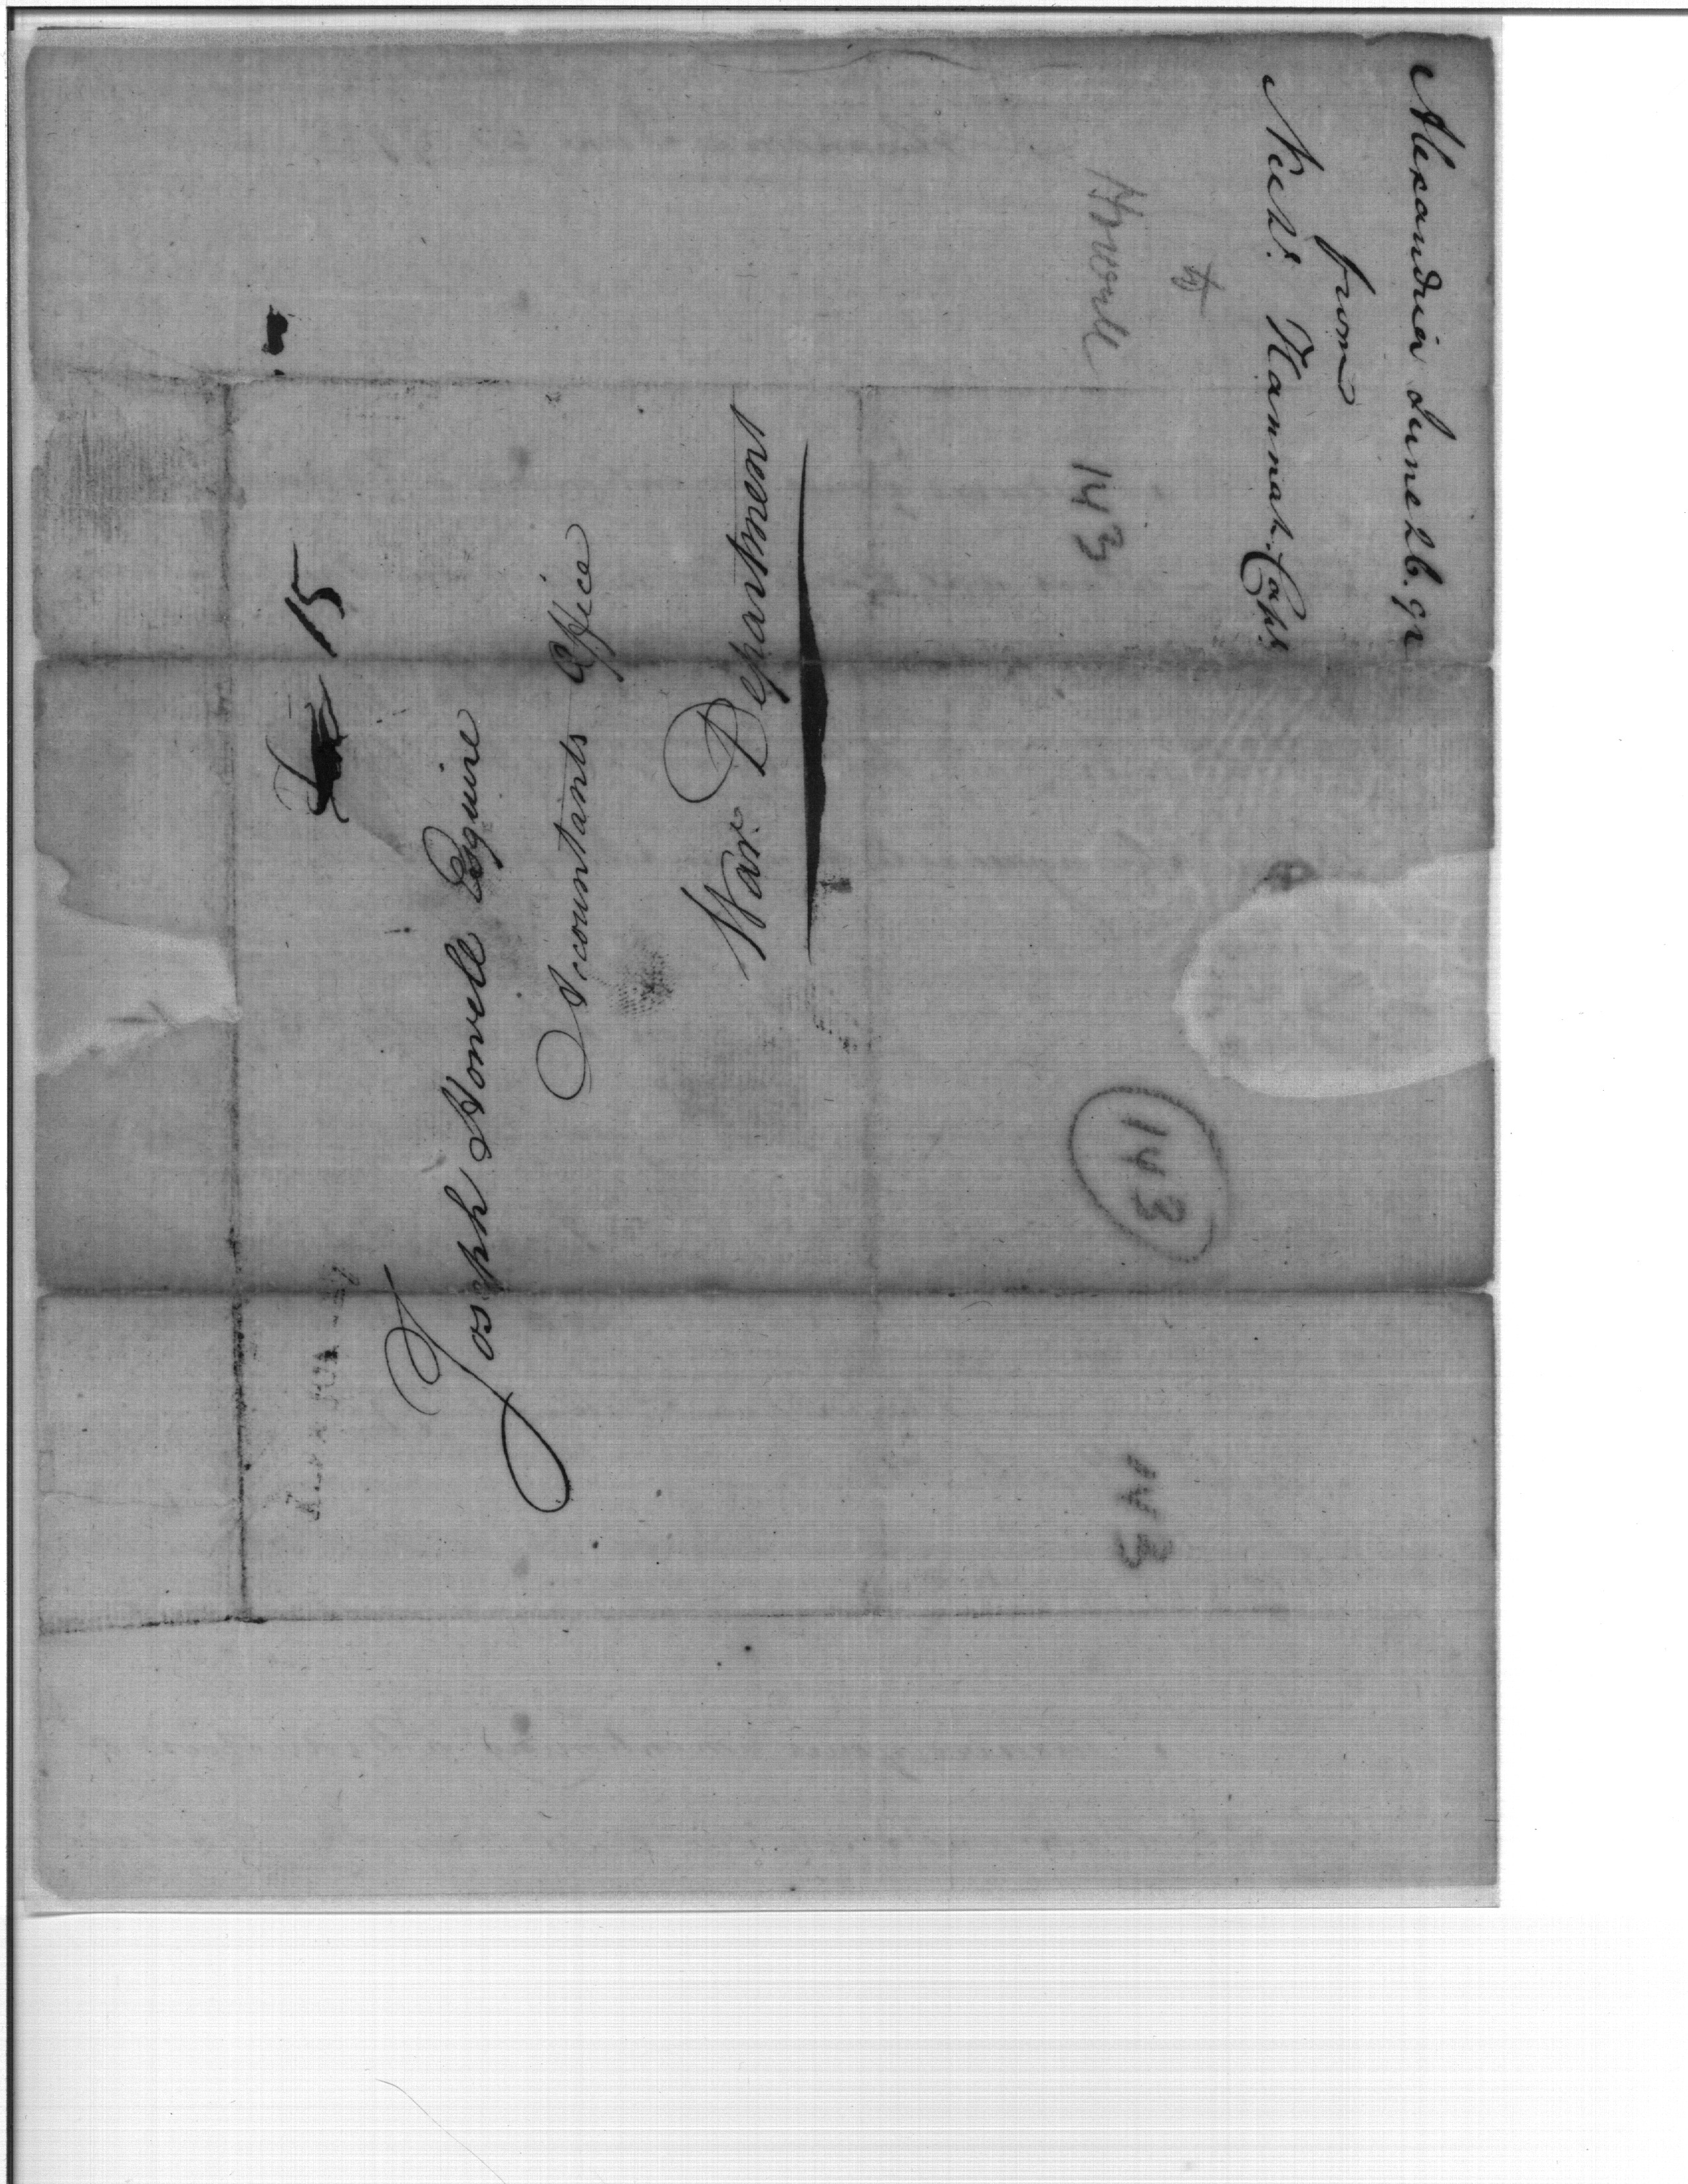 Alexandria June 26. 92
from
Nichs. Hannah. Capt.
to
Howell 143
143
143
15
Joseph Howell Esquire
Accountants Office
War Department